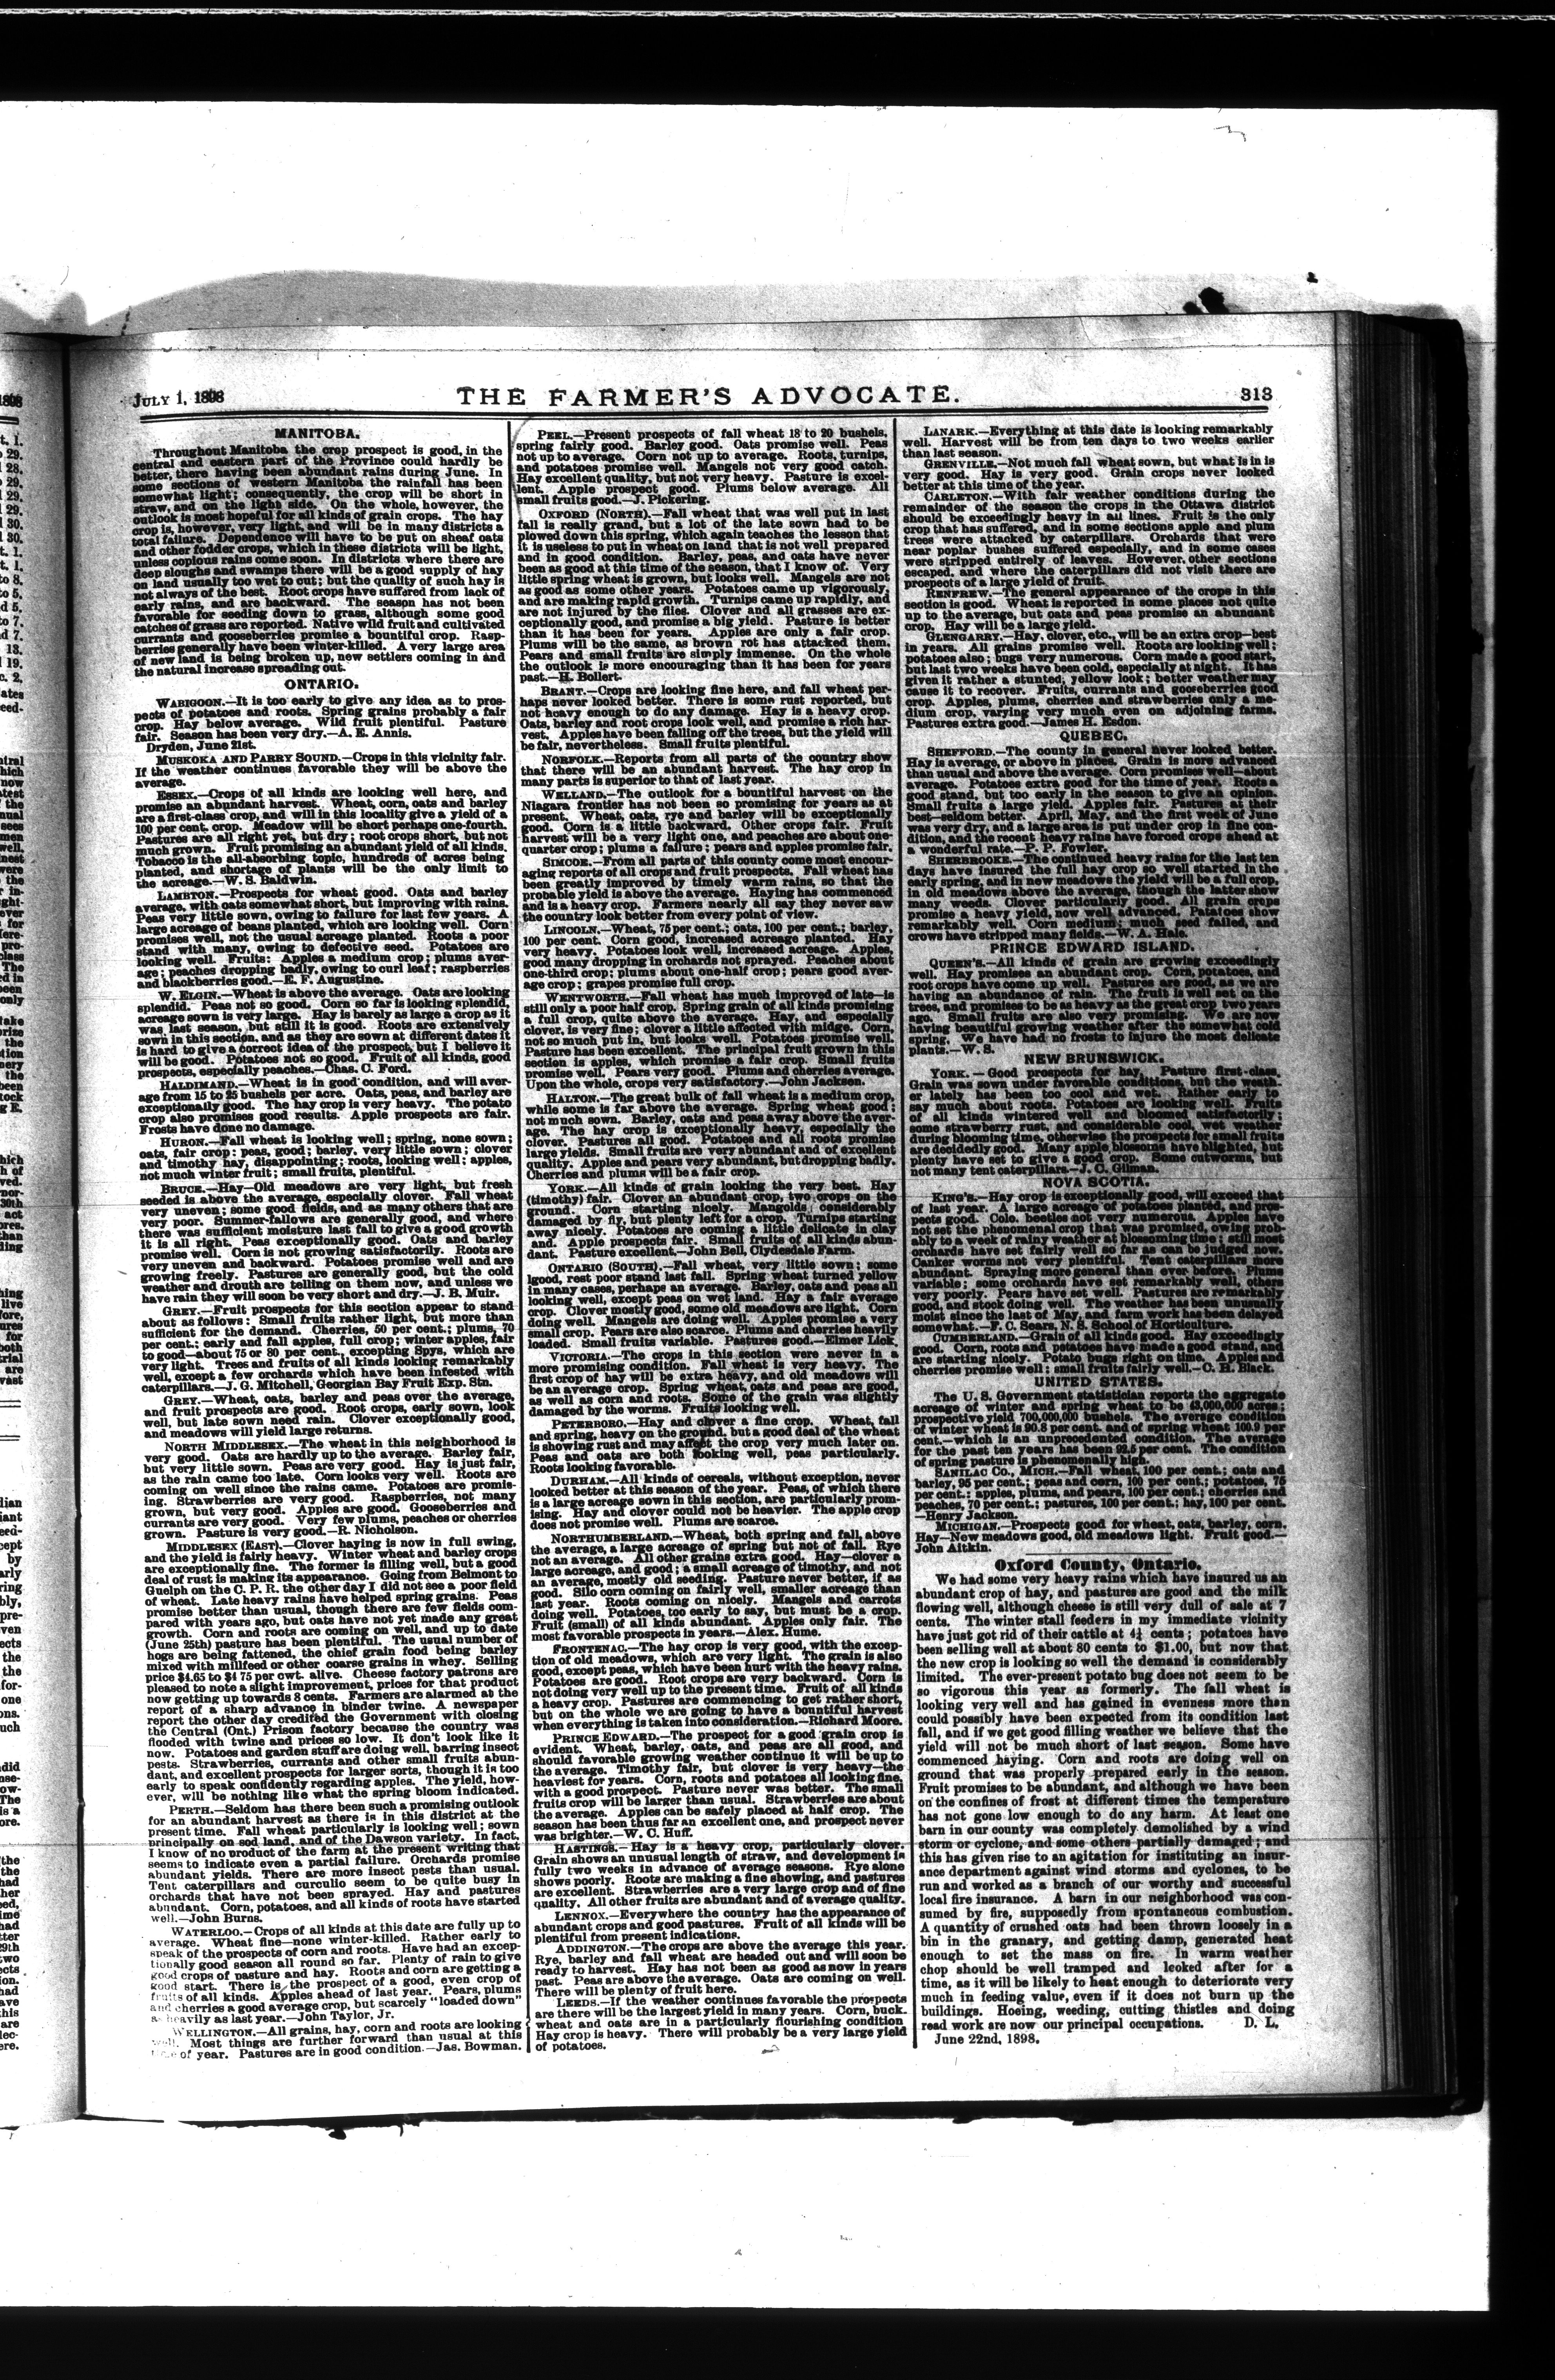 JULY 1, 1898 THE FARMER'S ADVOCATE. 313
MANITOBA.
Throughout Manitoba the crop prospect is good, in the
central and eastern part of the Province could hardly be
better, there having been abundant rains during June. In
some sections of western Manitoba the rainfall has been
somewhat light; consequently, the crop will be short in
straw, and on the light side. On the whole, however, the
outlook is most hopeful for all kinds of grain crops. The hay
crop is, however, very light, and will be in many districts a
total failure. Dependence will have to be put on sheaf oats
and other fodder crops, which in these districts will be light,
unless copious rains come soon. In districts where there are
deep sloughs and swamps there will be a good supply of hay
on land usually too wet to cut; but the quality of such hay is
not always of the best. Root crops have suffered from lack of
early rains, and are backward. The season has not been
favorable for seeding down to grass, although some good
catches of grass are reported. Native wild fruit and cultivated
currants and gooseberries promise a bountiful crop. Rasp-
berries generally have been winter-killed. A very large area
of new land is being broken up, new settlers coming in and
the natural increase spreading out.
ONTARIO.
WABIGOON.—It is too early to give any idea as to pros-
pects of potatoes and roots. Spring grains probably a fair
crop. Hay below average. Wild fruit plentiful. Pasture
fair. Season has been very dry.—A. E. Annis.
Dryden, June 21st.
MUSKOKA AND PARRY SOUND.—Crops in this vicinity fair.
If the weather continues favorable they will be above the
average.
ESSEX.—Crops of all kinds are looking well here, and
promise an abundant harvest. Wheat, corn, oats and barley
are a first-class crop, and will in this locality give a yield of a
100 per cent. crop. Meadow will be short perhaps one-fourth.
Pastures are all right yet, but dry; root crops short, but not
much grown. Fruit promising an abundant yield of all kinds.
Tobacco is the all-absorbing topic, hundreds of acres being
planted, and shortage of plants will be the only limit to
the acreage.—W. S. Baldwin.
LAMBTON.—Prospects for wheat good. Oats and barley
average, with oats somewhat short, but improving with rains.
Peas very little sown, owing to failure for last few years. A
large acreage of beans planted, which are looking well. Corn
promises well, not the usual acreage planted. Roots a poor
stand with many, owing to defective seed. Potatoes are
looking well. Fruits: Apples a medium crop; plums aver-
age; peaches dropping badly, owing to curl leaf; raspberries
and blackberries good.—E. F. Augustine.
W. ELGIN.—Wheat is above the average. Oats are looking
splendid. Peas not so good. Corn so far is looking splendid,
acreage sown is very large. Hay is barely as large a crop as it
was last season, but still it is good. Roots are extensively
sown in this section, and as they are sown at different dates it
is hard to give a correct idea of the prospect, but I believe it
will be good. Potatoes not so good. Fruit of all kinds, good
prospects, especially peaches.—Chas. C. Ford.
HALDIMAND.—Wheat is in good condition, and will aver-
age from 15 to 25 bushels per acre. Oats, peas, and barley are
exceptionally good. The hay crop is very heavy. The potato
crop also promises good results. Apple prospects are fair.
Frosts have done no damage.
HURON.—Fall wheat is looking well; spring, none sown;
oats, fair crop; peas, good; barley, very little sown; clover
and timothy hay, disappointing; roots, looking well; apples,
not much winter fruit; small fruits, plentiful.
BRUCE.—Hay—Old meadows are very light, but fresh
seeded is above the average, especially clover. Fall wheat
very uneven; some good fields, and as many others that are
very poor. Summer-fallows are generally good, and where
there was sufficient moisture last fall to give a good growth
it is all right. Peas exceptionally good. Oats and barley
promise well. Corn is not growing satisfactorily. Roots are
very uneven and backward. Potatoes promise well and are
growing freely. Pastures are generally good, but the cold
weather and drouth are telling on them now, and unless we
have rain they will soon be very short and dry.—J. B. Muir.
GREY.—Fruit prospects for this section appear to stand
about as follows: Small fruits rather light, but more than
sufficient for the demand. Cherries, 50 per cent.; plums, 70
per cent.; early and fall apples, full crop; winter apples, fair
to good—about 75 or 80 per cent., excepting Spys, which are
very light. Trees and fruits of all kinds looking remarkably
well, except a few orchards which have been infested with
caterpillars.—J. G. Mitchell, Georgian Bay Fruit Exp. Stn.
GREY.—Wheat, oats, barley and peas over the average,
and fruit prospects are good. Root crops, early sown, look
well, but late sown need rain. Clover exceptionally good,
and meadows will yield large returns.
NORTH MIDDLESEX.—The wheat in this neighborhood is
very good. Oats are hardly up to the average. Barley fair,
but very little sown. Peas are very good. Hay is just fair,
as the rain came too late. Corn looks very well. Roots are
coming on well since the rains came. Potatoes are promis-
ing. Strawberries are very good. Raspberries, not many
grown, but very good. Apples are good. Gooseberries and
currants are very good. Very few plums, peaches or cherries
grown. Pasture is very good.—R. Nicholson.
MIDDLESEX (EAST).—Clover haying is now in full swing,
and the yield is fairly heavy. Winter wheat and barley crops
are exceptionally fine. The former is filling well, but a good
deal of rust is making its appearance. Going from Belmont to
Guelph on the C. P. R. the other day I did not see a poor field
of wheat. Late heavy rains have helped spring grains. Peas
promise better than usual, though there are few fields com-
pared with years ago, but oats have not yet made any great
growth. Corn and roots are coming on well, and up to date
(June 25th) pasture has been plentiful. The usual number of
hogs are being fattened, the chief grain food being barley
mixed with millfeed or other coarse grains in whey. Selling
price $4.65 to $4 75 per cwt. alive. Cheese factory patrons are
pleased to note a slight improvement, prices for that product
now getting up towards 8 cents. Farmers are alarmed at the
report of a sharp advance in binder twine. A newspaper
report the other day credited the Government with closing
the Central (Ont.) Prison factory because the country was
flooded with twine and prices so low. It don't look like it
now. Potatoes and garden stuff are doing well, barring insect
pests. Strawberries, currants and other small fruits abun-
dant, and excellent prospects for larger sorts, though it is too
early to speak confidently regarding apples. The yield, how-
ever, will be nothing like what the spring bloom indicated.
PERTH.—Seldom has there been such a promising outlook
for an abundant harvest as there is in this district at the
present time. Fall wheat particularly is looking well; sown
principally on sod land, and of the Dawson variety. In fact,
I know of no product of the farm at the present writing that
seems to indicate even a partial failure. Orchards promise
abundant yields. There are more insect pests than usual.
Tent caterpillars and curculio seem to be quite busy in
orchards that have not been sprayed. Hay and pastures
abundant. Corn, potatoes, and all kinds of roots have started
well.—John Burns.
WATERLOO.—Crops of all kinds at this date are fully up to
average. Wheat fine—none winter-killed. Rather early to
speak of the prospects of corn and roots. Have had an excep-
tionally good season all round so far. Plenty of rain to give
good crops of pasture and hay. Roots and corn are getting a
good start. There is the prospect of a good, even crop of
fruits of all kinds. Apples ahead of last year. Pears, plums
and cherries a good average crop, but scarcely "loaded down"
as heavily as last year.—John Taylor, Jr.
WELLINGTON.—All grains, hay, corn and roots are looking
well. Most things are further forward than usual at this
time of year. Pastures are in good condition.—Jas. Bowman.
PEEL.—Present prospects of fall wheat 18 to 20 bushels,
spring fairly good. Barley good. Oats promise well. Peas
not up to average. Corn not up to average. Roots, turnips,
and potatoes promise well. Mangels not very good catch.
Hay excellent quality, but not very heavy. Pasture is excel-
lent. Apple prospect good. Plums below average. All
small fruits good.—J. Pickering.
OXFORD (NORTH).—Fall wheat that was well put in last
fall is really grand, but a lot of the late sown had to be
plowed down this spring, which again teaches the lesson that
it is useless to put in wheat on land that is not well prepared
and in good condition. Barley, peas, and oats have never
been as good at this time of the season, that I know of. Very
little spring wheat is grown, but looks well. Mangels are not
as good as some other years. Potatoes came up vigorously,
and are making rapid growth. Turnips came up rapidly, and
are not injured by the flies. Clover and all grasses are ex-
ceptionally good, and promise a big yield. Pasture is better
than it has been for years. Apples are only a fair crop.
Plums will be the same, as brown rot has attacked them.
Pears and small fruits are simply immense. On the whole
the outlook is more encouraging than it has been for years
past.—H. Bollert.
BRANT.—Crops are looking fine here, and fall wheat per-
haps never looked better. There is some rust reported, but
not heavy enough to do any damage. Hay is a heavy crop.
Oats, barley and root crops look well, and promise a rich har-
vest. Apples have been falling off the trees, but the yield will
be fair, nevertheless. Small fruits plentiful.
NORFOLK.—Reports from all parts of the country show
that there will be an abundant harvest. The hay crop in
many parts is superior to that of last year.
WELLAND.—The outlook for a bountiful harvest on the
Niagara frontier has not been so promising for years as at
present. Wheat, oats, rye and barley will be exceptionally
good. Corn is a little backward. Other crops fair. Fruit
harvest will be a very light one, and peaches are about one-
quarter crop; plums a failure; pears and apples promise fair.
SIMCOE.—From all parts of this county come most encour-
aging reports of all crops and fruit prospects. Fall wheat has
been greatly improved by timely warm rains, so that the
probable yield is above the average. Haying has commenced
and is a heavy crop. Farmers nearly all say they never saw
the country look better from every point of view.
LINCOLN.—Wheat, 75 per cent.; oats, 100 per cent.; barley,
100 per cent. Corn good, increased acreage planted. Hay
very heavy. Potatoes look well, increased acreage. Apples,
good many dropping in orchards not sprayed. Peaches about
one-third crop; plums about one-half crop; pears good aver-
age crop; grapes promise full crop.
WENTWORTH.—Fall wheat has much improved of late—is
still only a poor half crop. Spring grain of all kinds promising
a full crop, quite above the average. Hay, and especially
clover, is very fine; clover a little affected with midge. Corn,
not so much put in, but looks well. Potatoes promise well.
Pasture has been excellent. The principal fruit grown in this
section is apples, which promise a fair crop. Small fruits
promise well. Pears very good. Plums and cherries average.
Upon the whole, crops very satisfactory.—John Jackson.
HALTON.—The great bulk of fall wheat is a medium crop,
while some is far above the average. Spring wheat good;
not much sown. Barley, oats and peas away above the aver-
age. The hay crop is exceptionally heavy, especially the
clover. Pastures all good. Potatoes and all roots promise
large yields. Small fruits are very abundant and of excellent
quality. Apples and pears very abundant, but dropping badly.
Cherries and plums will be a fair crop.
YORK.—All kinds of grain looking the very best. Hay
(timothy) fair. Clover an abundant crop, two crops on the
ground. Corn starting nicely. Mangolds considerably
damaged by fly, but plenty left for a crop. Turnips starting
away nicely. Potatoes are coming a little delicate in clay
and. Apple prospects fair. Small fruits of all kinds abun-
dant. Pasture excellent.—John Bell, Clydesdale Farm.
ONTARIO (SOUTH).—Fall wheat, very little sown; some
lgood, rest poor stand last fall. Spring wheat turned yellow
in many cases, perhaps an average. Barley, oats and peas all
looking well, except peas on wet land. Hay a fair average
crop. Clover mostly good, some old meadows are light. Corn
doing well. Mangels are doing well. Apples promise a very
small crop. Pears are also scarce. Plums and cherries heavily
loaded. Small fruits variable. Pastures good.—Elmer Lick.
VICTORIA.—The crops in this section were never in a
more promising condition. Fall wheat is very heavy. The
first crop of hay will be extra heavy, and old meadows will
be an average crop. Spring wheat, oats and peas are good,
as well as corn and roots. Some of the grain was slightly
damaged by the worms. Fruits looking well.
PETERBORO.—Hay and clover a fine crop. Wheat, fall
and spring, heavy on the ground, but a good deal of the wheat
is showing rust and may affect the crop very much later on.
Peas and oats are both looking well, peas particularly.
Roots looking favorable.
DURHAM.—All kinds of cereals, without exception, never
looked better at this season of the year. Peas, of which there
is a large acreage sown in this section, are particularly prom-
ising. Hay and clover could not be heavier. The apple crop
does not promise well. Plums are scarce.
NORTHUMBERLAND.—Wheat, both spring and fall, above
the average, a large acreage of spring but not of fall. Rye
not an average. All other grains extra good. Hay—clover a
large acreage, and good; a small acreage of timothy, and not
an average, mostly old seeding. Pasture never better, if as
good. Silo corn coming on fairly well, smaller acreage than
last year. Roots coming on nicely. Mangels and carrots
doing well. Potatoes, too early to say, but must be a crop.
Fruit (small) of all kinds abundant. Apples only fair. The
most favorable prospects in years.—Alex. Hume.
FRONTENAC.—The hay crop is very good, with the excep-
tion of old meadows, which are very light. The grain is also
good, except peas, which have been hurt with the heavy rains.
Potatoes are good. Root crops are very backward. Corn is
not doing very well up to the present time. Fruit of all kinds
a heavy crop. Pastures are commencing to get rather short,
but on the whole we are going to have a bountiful harvest
when everything is taken into consideration.—Richard Moore.
PRINCE EDWARD.—The prospect for a good grain crop is
evident. Wheat, barley, oats, and peas are all good, and
should favorable growing weather continue it will be up to
the average. Timothy fair, but clover is very heavy—the
heaviest for years. Corn, roots and potatoes all looking fine,
with a good prospect. Pasture never was better. The small
fruits crop will be larger than usual. Strawberries are about
the average. Apples can be safely placed at half crop. The
season has been thus far an excellent one, and prospect never
was brighter.—W. C. Huff.
HASTINGS.—Hay is a heavy crop, particularly clover.
Grain shows an unusual length of straw, and development is
fully two weeks in advance of average seasons. Rye alone
shows poorly. Roots are making a fine showing, and pastures
are excellent. Strawberries are a very large crop and of fine
quality. All other fruits are abundant and of average quality.
LENNOX.—Everywhere the country has the appearance of
abundant crops and good pastures. Fruit of all kinds will be
plentiful from present indications.
ADDINGTON.—The crops are above the average this year.
Rye, barley and fall wheat are headed out and will soon be
ready to harvest. Hay has not been as good as now in years
past. Peas are above the average. Oats are coming on well.
There will be plenty of fruit here.
LEEDS.—If the weather continues favorable the prospects
are there will be the largest yield in many years. Corn, buck.
wheat and oats are in a particularly flourishing condition
Hay crop is heavy. There will probably be a very large yield
of potatoes.
LANARK.—Everything at this date is looking remarkably
well. Harvest will be from ten days to two weeks earlier
than last season.
GRENVILLE.—Not much fall wheat sown, but what is in is
very good. Hay is very good. Grain crops never looked
better at this time of the year.
CARLETON.—With fair weather conditions during the
remainder of the season the crops in the Ottawa district
should be exceedingly heavy in all lines. Fruit is the only
crop that has suffered, and in some sections apple and plum
trees were attacked by caterpillars. Orchards that were
near poplar bushes suffered especially, and in some cases
were stripped entirely of leaves. However, other sections
escaped, and where the caterpillars did not visit there are
prospects of a large yield of fruit.
RENFREW.—The general appearance of the crops in this
section is good. Wheat is reported in some places not quite
up to the average, but oats and peas promise an abundant
crop. Hay will be a large yield.
GLENGARRY.—Hay, clover, etc., will be an extra crop—best
in years. All grains promise well. Roots are looking well;
potatoes also; bugs very numerous. Corn made a good start,
but last two weeks have been cold, especially at night. It has
given it rather a stunted, yellow look; better weather may
cause it to recover. Fruits, currants and gooseberries good
crop. Apples, plums, cherries and strawberries only a me-
dium crop, varying very much even on adjoining farms.
Pastures extra good.—James H. Esdon.
QUEBEC.
SHEFFORD.—The county in general never looked better.
Hay is average, or above in places. Grain is more advanced
than usual and above the average. Corn promises well—about
average. Potatoes extra good for the time of year. Roots a
good stand, but too early in the season to give an opinion.
Small fruits a large yield. Apples fair. Pastures at their
best—seldom better. April, May, and the first week of June
was very dry, and a large area is put under crop in fine con-
dition, and the recent heavy rains have forced crops ahead at
a wonderful rate.—P. P. Fowler.
SHERBROOKE.—The continued heavy rains for the last ten
days have insured the full hay crop so well started in the
early spring, and in new meadows the yield will be a full crop,
in old meadows above the average, though the latter show
many weeds. Clover particularly good. All grain crops
promise a heavy yield, now well advanced. Patatoes show
remarkably well. Corn medium; much seed failed, and
crows have stripped many fields.—W. A. Hale.
PRINCE EDWARD ISLAND.
QUEEN'S.—All kinds of grain are growing exceedingly
well. Hay promises an abundant crop. Corn, potatoes, and
root crops have come up well. Pastures are good, as we are
having an abundance of rain. The fruit is well set on the
trees, and promises to be as heavy as the great crop two years
ago. Small fruits are also very promising. We are now
having beautiful growing weather after the somewhat cold
spring. We have had no frosts to injure the most delicate
plants.—W. S.
NEW BRUNSWICK.
YORK.—Good prospects for hay. Pasture first-class.
Grain was sown under favorable conditions, but the weath-
er lately has been too cool and wet. Rather early to
say much about roots. Potatoes are looking well. Fruits
of all kinds wintered well and bloomed satisfactorily;
some strawberry rust, and considerable cool, wet weather
during blooming time, otherwise the prospects for small fruits
are decidedly good. Many apple blossoms have blighted, but
plenty have set to give a good crop. Some cutworms, but
not many tent caterpillars.—J. C. Gilman.
NOVA SCOTIA.
KING'S.—Hay crop is exceptionally good, will exceed that
of last year. A large acreage of potatoes planted, and pros-
pects good. Colo. beetles not very numerous. Apples have
not set the phenomenal crop that was promised, owing prob-
ably to a week of rainy weather at blossoming time; still most
orchards have set fairly well so far as can be judged now.
Canker worms not very plentiful. Tent caterpillars more
abundant. Spraying more general than ever before. Plums
variable; some orchards have set remarkably well, others
very poorly. Pears have set well. Pastures are remarkably
good, and stock doing well. The weather has been unusually
moist since the last of May, and farm work has been delayed
somewhat.—F. C. Sears, N. S. School of Horticulture.
CUMBERLAND.—Grain of all kinds good. Hay exceedingly
good. Corn, roots and potatoes have made a good stand, and
are starting nicely. Potato bugs right on time. Apples and
cherries promise well; small fruits fairly well.—C. H. Black.
UNITED STATES.
The U. S. Government statistician reports the aggregate
acreage of winter and spring wheat to be 43,000,000 acres;
prospective yield 700,000,000 bushels. The average condition
of winter wheat is 90.8 per cent. and of spring wheat 100.9 per
cent.—which is an unprecedented condition. The average
for the past ten years has been 92.5 per cent. The condition
of spring pasture is phenomenally high.
SANILAC CO., MICH.—Fall wheat, 100 per cent.; oats and
barley, 95 per cent.; peas and corn, 100 per cent.; potatoes, 75
per cent.; apples, plums, and pears, 100 per cent.; cherries and
peaches, 70 per cent.; pastures, 100 per cent.; hay, 100 per cent.
—Henry Jackson.
MICHIGAN.—Prospects good for wheat, oats, barley, corn.
Hay—New meadows good, old meadows light. Fruit good.—
John Aitkin.
Oxford County, Ontario.
We had some very heavy rains which have insured us an
abundant crop of hay, and pastures are good and the milk
flowing well, although cheese is still very dull of sale at 7
cents. The winter stall feeders in my immediate vicinity
have just got rid of their cattle at 4½ cents; potatoes have
been selling well at about 80 cents to $1.00, but now that
the new crop is looking so well the demand is considerably
limited. The ever-present potato bug does not seem to be
so vigorous this year as formerly. The fall wheat is
looking very well and has gained in evenness more than
could possibly have been expected from its condition last
fall, and if we get good filling weather we believe that the
yield will not be much short of last season. Some have
commenced haying. Corn and roots are doing well on
ground that was properly prepared early in the season.
Fruit promises to be abundant, and although we have been
on the confines of frost at different times the temperature
has not gone low enough to do any harm. At least one
barn in our county was completely demolished by a wind
storm or cyclone, and some others partially damaged; and
this has given rise to an agitation for instituting an insur-
ance department against wind storms and cyclones, to be
run and worked as a branch of our worthy and successful
local fire insurance. A barn in our neighborhood was con-
sumed by fire, supposedly from spontaneous combustion.
A quantity of crushed oats had been thrown loosely in a
bin in the granary, and getting damp, generated heat
enough to set the mass on fire. In warm weather
chop should be well tramped and looked after for a
time, as it will be likely to heat enough to deteriorate very
much in feeding value, even if it does not burn up the
buildings. Hoeing, weeding, cutting thistles and doing
read work are now our principal occupations. D. L.
June 22nd, 1898.